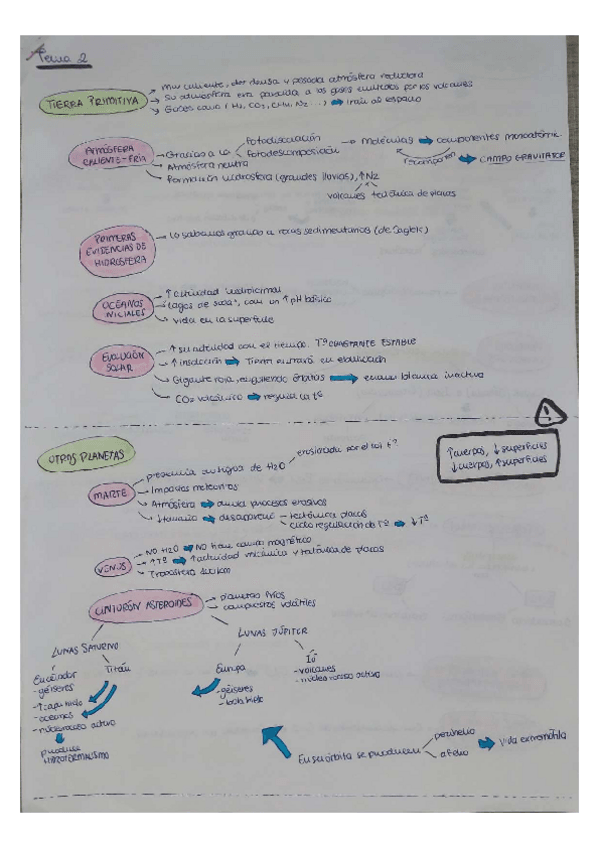 Tema 2
TIERRA PRIMITIVA
Muy caliente, densa y pesada atmósfera reductora
Su atmósfera era parecida a los gases emitidos por los volcanes
Gases como (H₂, CO₂, CH₄, N₂ ...) ➡ iran al espacio
ATMÓSFERA CALIENTE-FRÍA
Gracias a la
fotodisociación
fotodescomposición
→ Moléculas ➡ componentes monoatómic.
recomponen ➡ CAMPO GRAVITATOR
Atmósfera neutra
Formación hidrosfera (grandes lluvias), ↑N₂
volcanes tectónica de placas
PRIMERAS EVIDENCIAS DE HIDROSFERA
Lo sabemos gracias a rocas sedimentarias
OCÉANOS INICIALES
↑ actividad hidrotermal
Lagos de soda", con un ↑pH básico
Vida en la superficie
EVOLUCIÓN SOLAR
↑ su actividad con el tiempo. Tª CONSTANTE ESTABLE
↑ insolación ➡ Tierra entrará en
Gigante roja, ➡ enana blanca inactiva
CO₂ volcánico ➡ regula la tª
!
OTROS PLANETAS
↑cuerpos, ↓superficies
↓cuerpos, ↑superficies
MARTE
presencia de H₂O
erosionada por el sol t?
Impactos meteoritos
Atmósfera ➡ procesos erosivos
↓tamaño ➡ desapareció
tectónica placas
ciclo regulación de Tª ➡ ↓Tª
VENUS
NO H₂O ➡ NO tiene campo magnético
↑Tª ➡ ↑actividad volcánica y tectónica de placas
Troposfera
CINTURÓN ASTEROIDES
planetas fríos
compuestos volátiles
LUNAS SATURNO
LUNAS JÚPITER
Encélador
-géiseres
-↑capa hielo
-océanos
-núcleo activo
produce HIDROTERMALISMO
Titán
Europa
-géiseres
-bola hielo
Ío
-volcanes
-núcleo rocoso activo
En su órbita se producen
perihelio
afelio
➡ Vida extremófila